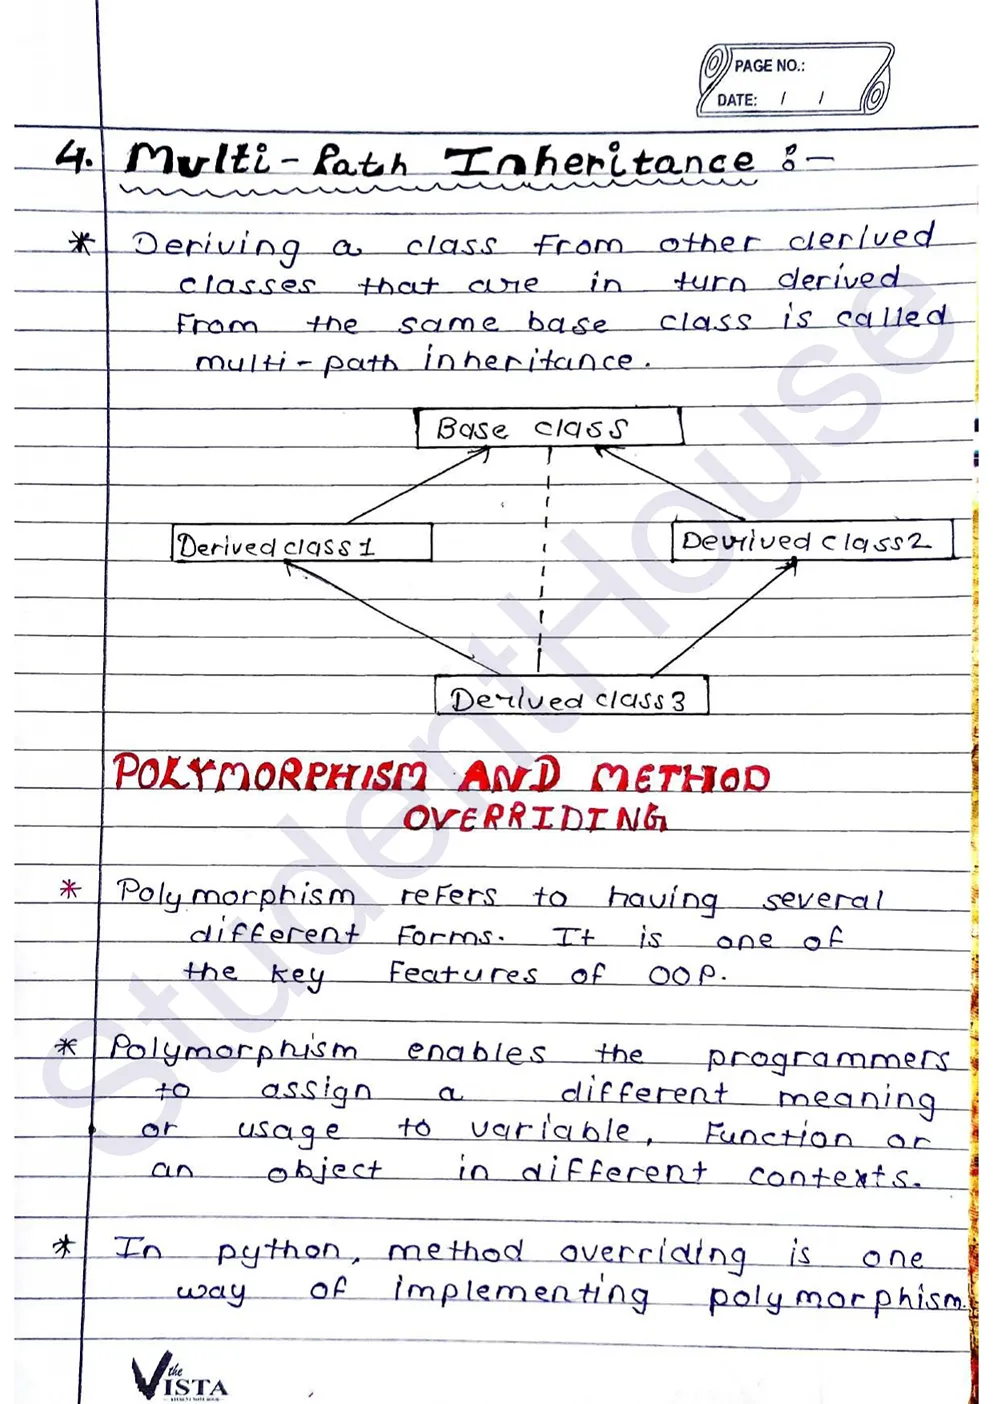 PAGE NO.:
DATE: / /
4. Multi-Path Inheritance :-
* Deriving a class from other derived
classes that are in turn derived
from the same base class is called
multi-path inheritance.
Base class
Derived class 1
Derived class 2
Derived class 3
POLYMORPHISM AND METHOD
OVERRIDING
* Polymorphism refers to having several
different forms. It is one of
the key features of OOP.
* Polymorphism enables the programmers
to assign a different meaning
or usage to variable, function or
an object in different contexts.
* In python, method overriding is one
way of implementing polymorphism.
StudentHouse
the
VISTA